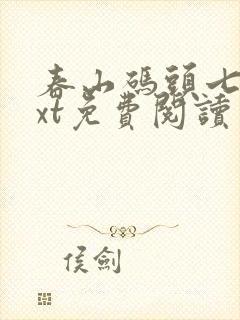 春山碼頭七
xt免費閱讀
侯劍